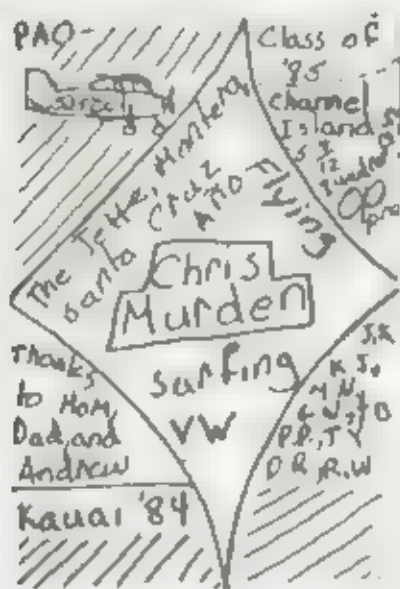 PAO-
Class of
'85
Channel
Island
The Jette, Monterey
Santa Cruz
AND
Flying
Chris
Murden
surfing
VW
Thanks
to Mom,
Dad, and
Andrew
Kauai '84
J.K
K.J.
M.N.
P.P., T.Y
D.R., R.W